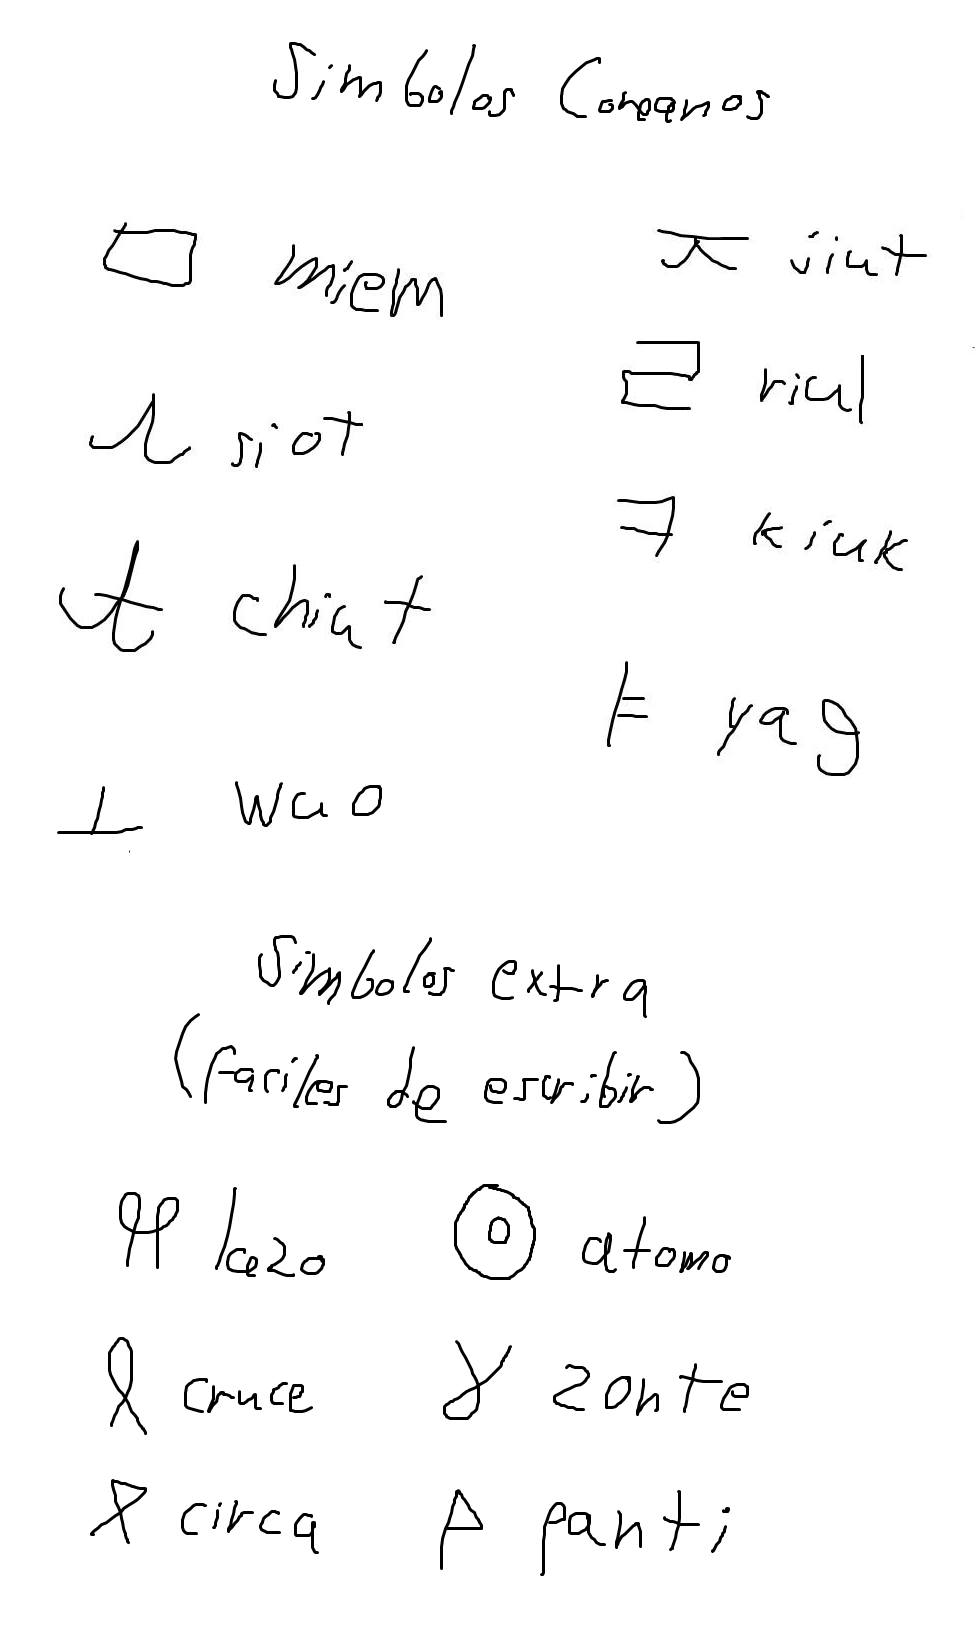 Simbolos Coreanos
ㅁ miem
ㅈ jiut
ㄹ riul
ㅅ siot
ㅋ kiuk
ㅊ chiut
ㅑ yag
ㅗ wao
Simbolos extra
(faciles de escribir)
lazo
atomo
cruce
zonte
circa
panti